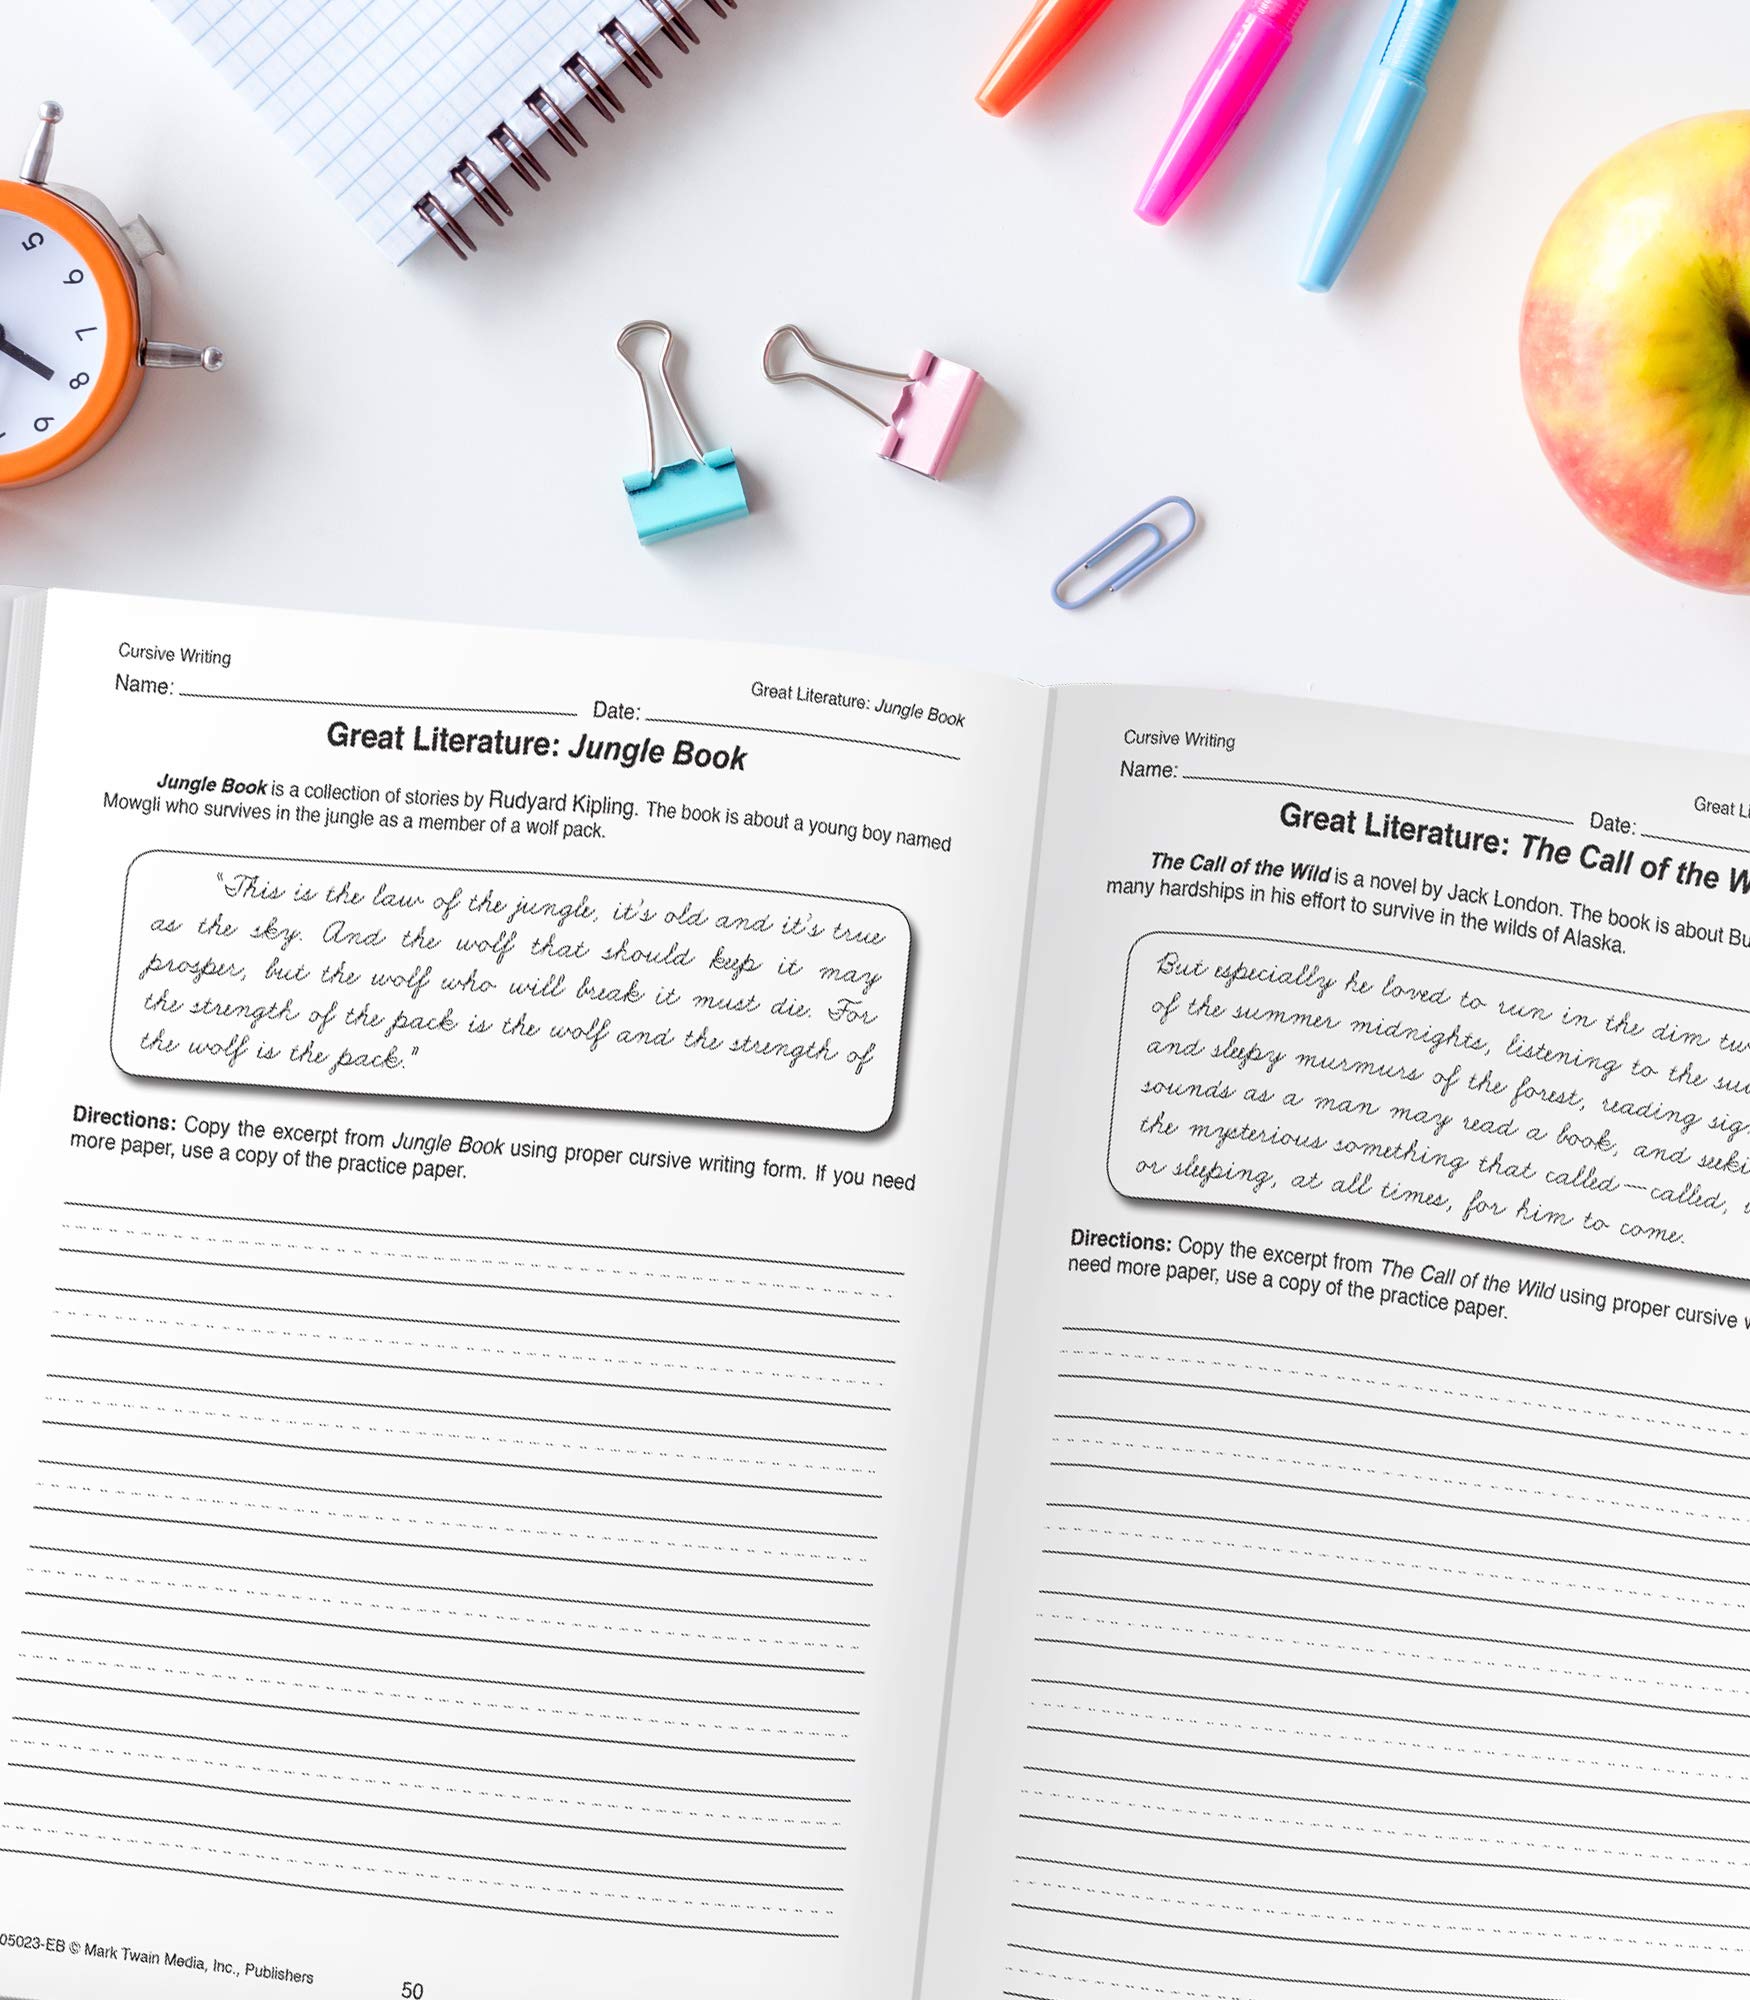 5
6
7
8
9
Cursive Writing
Great Literature: Jungle Book
Name:
Date:
Great Literature: Jungle Book
Jungle Book is a collection of stories by Rudyard Kipling. The book is about a young boy named
Mowgli who survives in the jungle as a member of a wolf pack.
"This is the law of the jungle, it's old and it's true
as the sky. And the wolf that should keep it may
prosper, but the wolf who will break it must die. For
the strength of the pack is the wolf and the strength of
the wolf is the pack."
Directions: Copy the excerpt from Jungle Book using proper cursive writing form. If you need
more paper, use a copy of the practice paper.
05023-EB © Mark Twain Media, Inc., Publishers
50
Cursive Writing
Great
Name:
Date:
Great Literature: The Call of the
The Call of the Wild is a novel by Jack London. The book is about
many hardships in his effort to survive in the wilds of Alaska.
But especially he loved to run in the dim
of the summer midnights, listening to the
and sleepy murmurs of the forest, reading
sounds as a man may read a book, and
the mysterious something that called—called,
or sleeping, at all times, for him to come.
Directions: Copy the excerpt from The Call of the Wild using proper cursive
need more paper, use a copy of the practice paper.